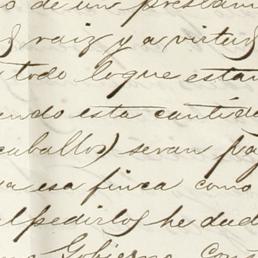 de un prestam
raiz y a virtud
todo lo que estan
endo esta cantida
caballos) seran pa
esa finca como
pedirlos he dad
Gobierno Cons